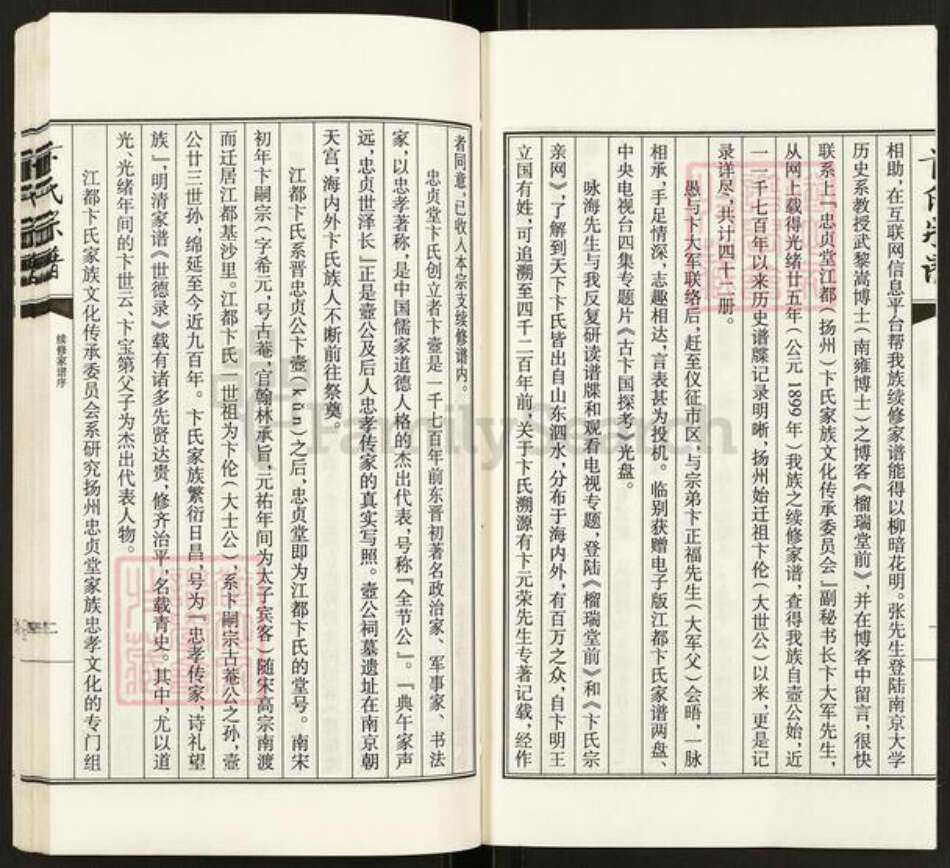 相助，在互联网信息平台帮我族续修家谱能得以柳暗花明。张先生登陆南京大学
历史系教授武黎嵩博士（南雍博士）之博客《榴瑞堂前》，并在博客中留言，很快
联系上『忠贞堂江都（扬州）卞氏家族文化传承委员会』副秘书长卞大军先生，
从网上载得光绪廿五年（公元1899年）我族之续修家谱，查得我族自壸公始，近
一千七百年以来历史谱牒记录明晰，扬州始迁祖卞伦（大世公）以来，更是记
录详尽，共计四十二册。
愚与卞大军联络后，赶至仪征市区，与宗弟卞正福先生（大军父）会晤，一脉
相承，手足情深，志趣相达，言表甚为投机。临别获赠电子版江都卞氏家谱两盘、
中央电视台四集专题片《古卞国探考》光盘。
咏海先生与我反复研读谱牒和观看电视专题，登陆《榴瑞堂前》和《卞氏宗
亲网》，了解到天下卞氏皆出自山东泗水，分布于海内外，有百万之众，自卞明王
立国有姓，可追溯至四千二百年前，关于卞氏溯源有卞元荣先生专著记载，经作
者同意，已收入本宗支续修谱内。
忠贞堂卞氏创立者卞壸是一千七百年前东晋初著名政治家、军事家、书法
家，以忠孝著称，是中国儒家道德人格的杰出代表，号称『全节公』。『典午家声
远，忠贞世泽长』正是壸公及后人忠孝传家的真实写照。壸公祠墓遗址在南京朝
天宫，海内外卞氏族人不断前往祭奠。
江都卞氏系晋忠贞公卞壸（kǔn）之后，忠贞堂即为江都卞氏的堂号。南宋
初年卞嗣宗（字希元，号古菴，官翰林承旨，元祐年间为太子宾客）随宋高宗南渡
而迁居江都基沙里。江都卞氏一世祖为卞伦（大士公），系卞嗣宗古菴公之孙，壸
公廿三世孙，绵延至今近九百年。卞氏家族繁衍日昌，号为『忠孝传家，诗礼望
族』，明清家谱《世德录》载有诸多先贤达贵，修齐治平，名载青史。其中，尤以道
光、光绪年间的卞世云、卞宝第父子为杰出代表人物。
江都卞氏家族文化传承委员会系研究扬州忠贞堂家族忠孝文化的专门组
卞氏宗谱
续修家谱序
FamilySearch